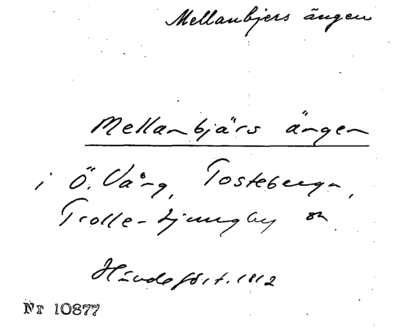 Mellanbjers ängen
Mellanbjärs ängen
i Ö. Vång, Tosteberga,
Trolle-Ljungby sn
1812
Nr 10877